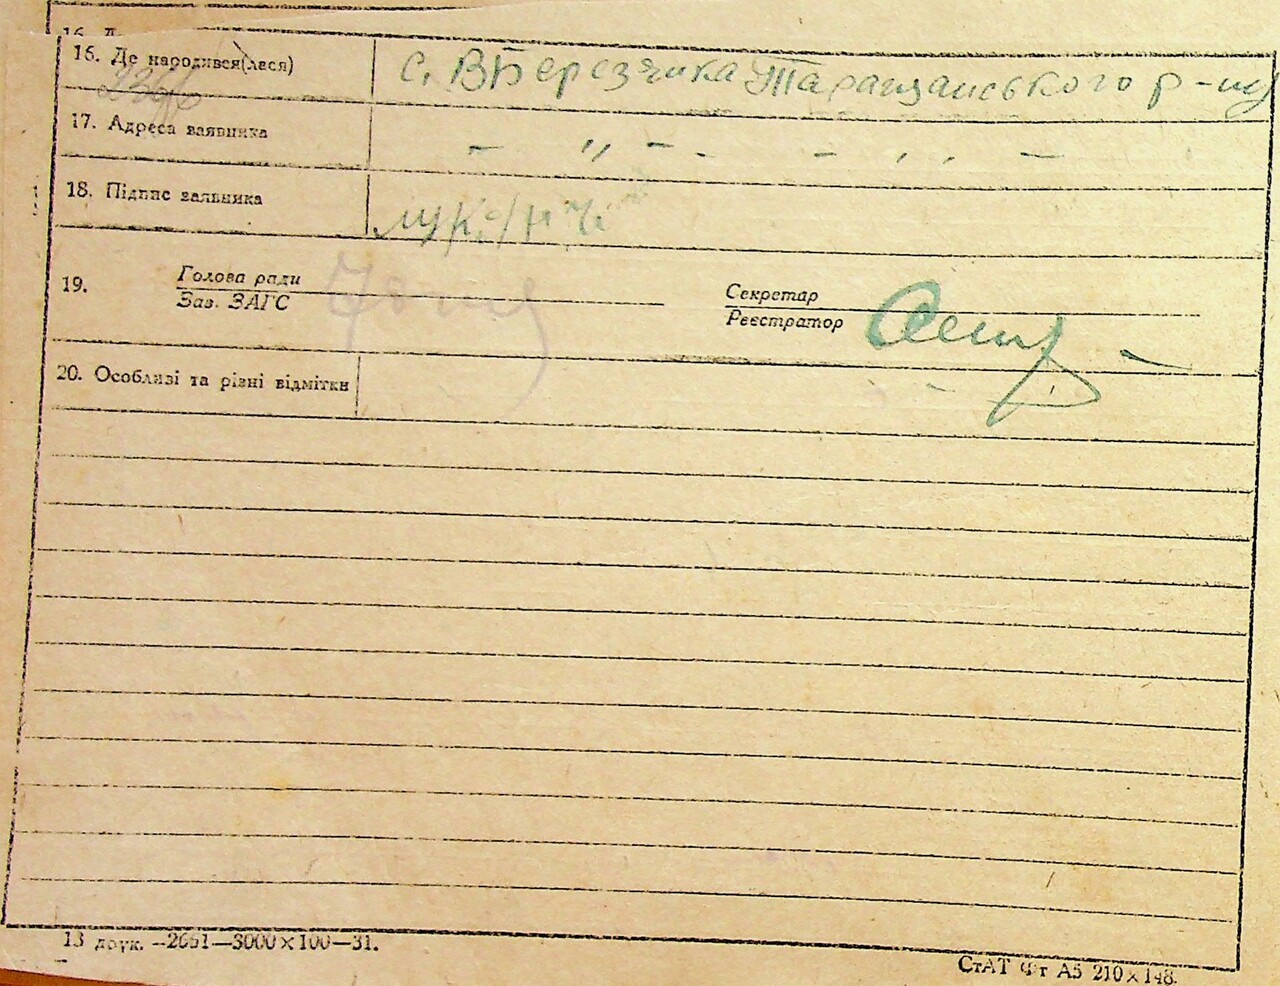 16. Де народився(лася) с. ВБерезянка Таращанського р-ну
17. Адреса заявника - „ - - - „ -
18. Підпис заявника
19. Голова ради Секретар
Зав. ЗАГС Реєстратор
20. Особливі та різні відмітки
13 друк. —2661—3000×100—31.
СтАТ Фт А5 210×148.